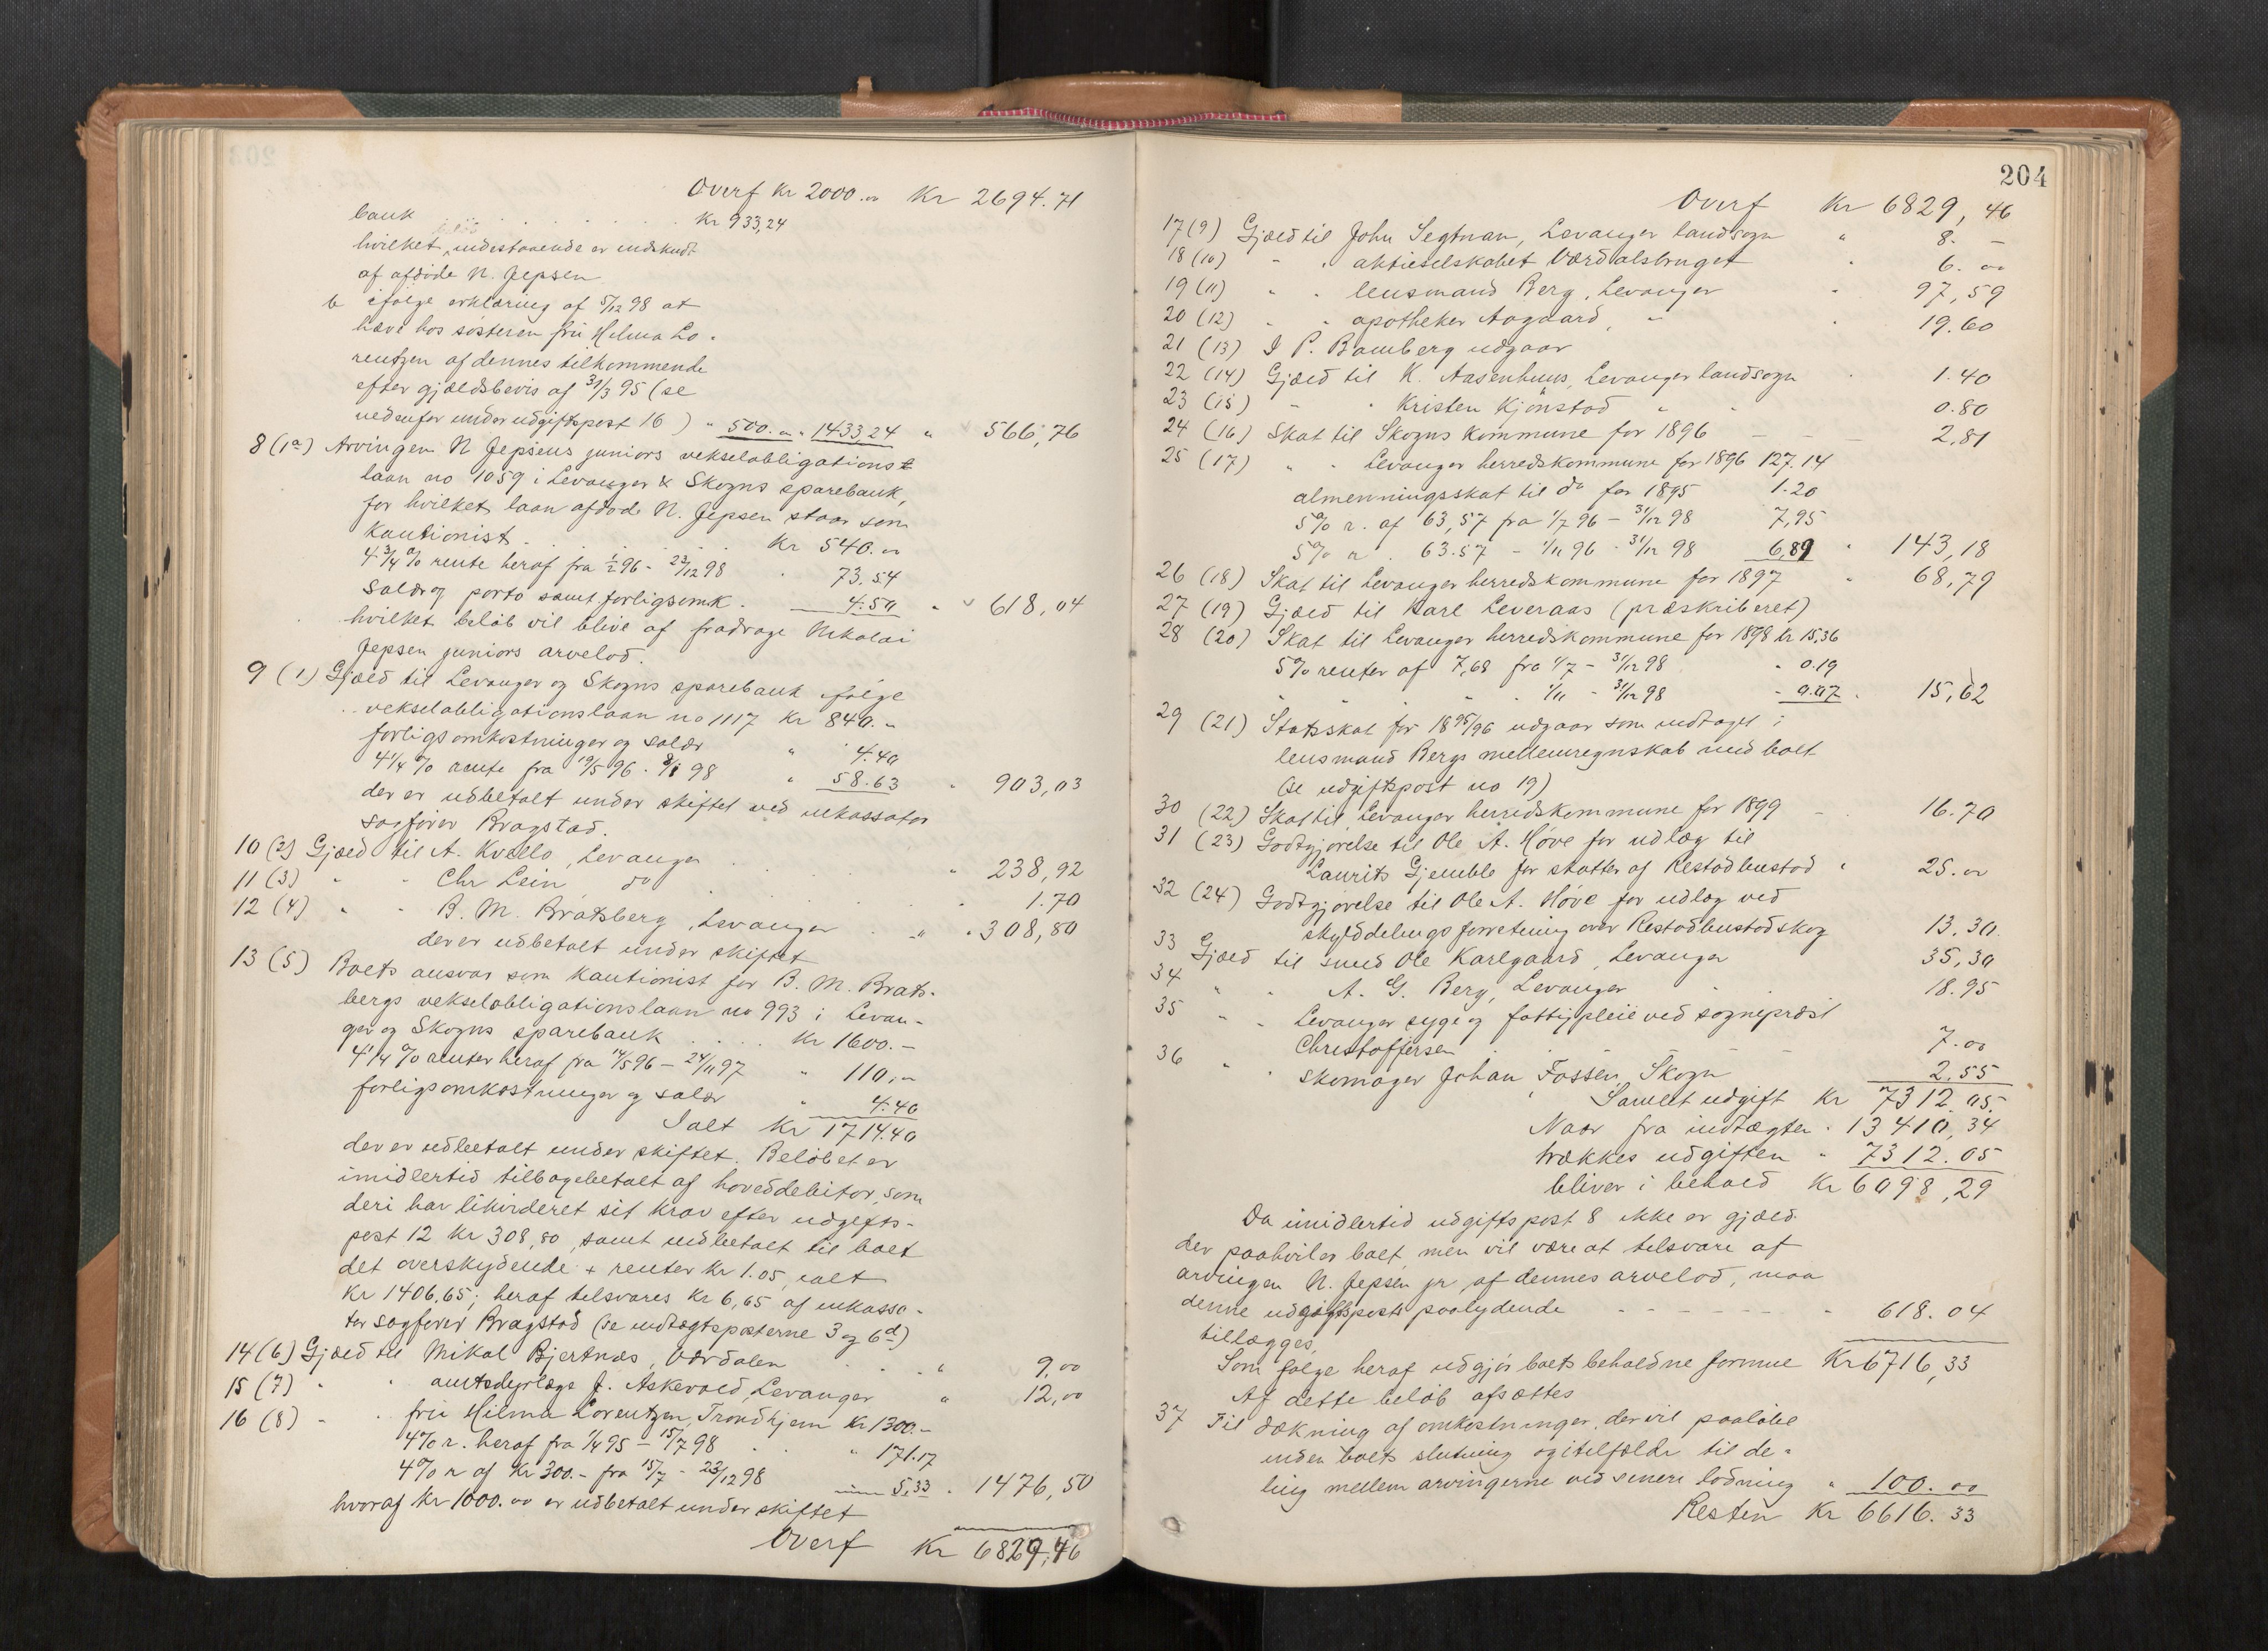 Overf Kr 2000.00 Kr 2694.71
bank . . . . . . . Kr 933,24
beløb
hvilket indestaaende er indskudt
af afdøde N. Jepsen
b ifølge erklæring af 5/12 98 at
hæve hos søsteren fru Hilma Lo-
rentzen af dennes tilkommende
efter gjældsbevis af 31/3 95 (se
nedenfor under udgiftspost 16) " 500.00 " 1433,24 " 566,76
8 (1a) Arvingen N Jepsens juniors vekselobligations
laan no 1059 i Levanger & Skogns sparebank,
for hvilket laan afdøde N. Jepsen staar som
kautionist . . . . . . Kr 540.00
4 3/4 % rente heraf fra 1/2 96 - 23/12 98 " 73.54
Salær og porto samt forligsomk. 4.50 " 618,04
hvilket beløb vil blive at fradrage Nikolai
Jepsen juniors arvelod.
9 (1) Gjæld til Levanger og Skogns sparebank ifølge
vekselobligationslaan no 1117 Kr 840.-
forligsomkostninger og salær " 4.40
4 1/4 % rente fra 19/5 96 - 8/1 98 " 58.63 " 903,03
der er udbetalt under skiftet ved inkassator
sagfører Bragstad.
10 (2) Gjæld til A. Kvello, Levanger . . . " 238,92
11 (3) " - Chr Lein do . . . " 1.70
12 (4) " - B. M. Bratsberg, Levanger . " " 308,80
der er udbetalt under skiftet
13 (5) Boets ansvar som kautionist for B. M. Brats-
bergs vekselobligationslaan no 993 i Levan-
ger og Skogns sparebank . . . . Kr 1600.-
4 1/4 % renter heraf fra 14/5 96 - 24/11 97 " 110,00
forligsomkostninger og salær " 4.40
Ialt Kr 1714.40
der er udbetalt under skiftet. Beløbet er
imidlertid tilbagebetalt af hoveddebitor, som
deri har likvideret sit krav efter udgifts-
post 12 Kr 308,80, samt indbetalt til boet
det overskydende + renter Kr 1.05, ialt
Kr 1406,65; heraf tilsvares Kr 6,65 af inkassa-
tor sagfører Bragstad (se indtægtsposterne 3 og 6d)
14 (6) Gjæld til Mikal Bjertnæs, Værdalen . . " 9,00
15 (7) " " amtsdyrlæge J. Askevold, Levanger " 12,00
16 (8) - " fru Hilma Lorentzen, Trondhjem Kr 1300.-
4 % r. heraf fra 1/4 95 - 15/7 98 . . " 171.17
4 % r af Kr 300.- fra 15/7 - 23/12 98 5.33 " 1476,50
hvoraf Kr 1000.00 er udbetalt under skiftet
Overf Kr 6829,46
204
Overf Kr 6829,46
17 (9) Gjæld til John Segtnan, Levanger landsogn " 8. -
18 (10) " " aktieselskabet Værdalsbruget " 6.00
19 (11) " " lensmand Berg, Levanger " 97,59
20 (12) " " apotheker Aagaard, - " 19.60
21 (13) I P. Bamberg udgaar
22 (14) Gjæld til K. Aasenhuus, Levanger landsogn " 1.40
23 (15) - " Kristen Kjønstad " " 0.80
24 (16) Skat til Skogns kommune for 1896 - - - 2,81
25 (17) " " Levanger herredskommune for 1896 127.14
almenningsskat til do for 1895 1.20
5 % r. af 63,57 fra 1/7 96 - 31/12 98 7,95
5 % r . 63.57 - 1/11 96 - 31/12 98 6,89 " 143,18
26 (18) Skat til Levanger herredskommune for 1897 " 68,79
27 (19) Gjæld til Karl Leveraas (præskriberet)
28 (20) Skat til Levanger herredskommune for 1898 Kr 15.36
5 % renter af 7,68 fra 1/7 - 31/12 98 " 0.19
" " " " 1/11 - 31/12 98 - 0.07 " 15,62
29 (21) Statsskat for 1895/96 udgaar som indtaget i
lensmand Bergs mellemregnskab med boet
(se udgiftspost no 19)
30 (22) Skat til Levanger herredskommune for 1899 - 16.70
31 (23) Godtgjørelse til Ole A. Høve for udlæg til
Laurits Gjemble for skatter af Restadbustad " 25.00
32 (24) Godtgjørelse til Ole A. Høve for udlæg ved
skylddelingsforretning over Restadbustadskog 13.30
33 Gjæld til smed Ole Karlgaard, Levanger 35,30
34 " " A. G. Berg, Levanger " 18.95
35 " - Levanger syge og fattigpleie ved sogneprest
Christoffersen . . - - 7.00
36 " " skomager Johan Fossen, Skogn 2.55
Samlet udgift Kr 7312.05
Naar fra indtægten " 13410,34
trækkes udgiften " 7312.05
bliver i behold Kr 6098,29
Da imidlertid udgiftspost 8 ikke er gjæld
der paahviler boet, men vil være at tilsvare af
arvingen N. Jepsen jr, af dennes arvelod, maa
denne udgiftsposts paalydende - - - - - - " 618.04
tillægges
Som følge heraf udgjør boets beholdne formue Kr 6716,33
Af dette beløb afsættes
37 Til dækning af omkostninger, der vil paaløbe
inden boets slutning og itilfælde til de-
ling mellem arvingerne ved senere lodning " 100.00
Resten Kr 6616.33